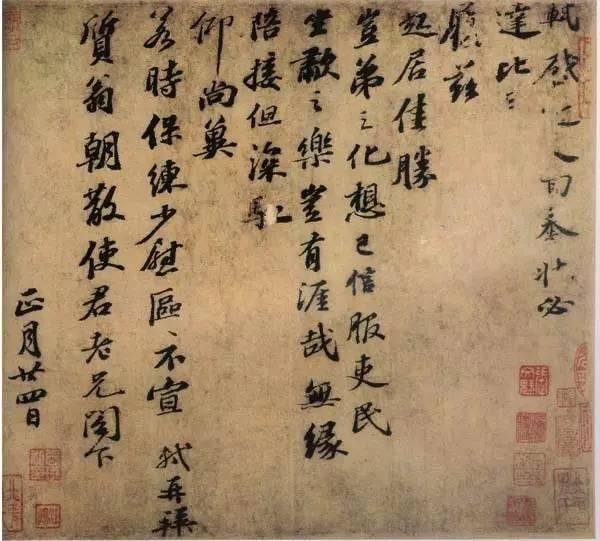 軾啟近人回奉狀必
達比日
履茲
起居佳勝
豈弟之化想已信服吏民
坐歗之樂豈有涯哉無緣
陪接但深馳
仰尚冀
若時保練少慰區區不宣 軾再拜
質翁朝散使君老兄閣下
正月廿四日